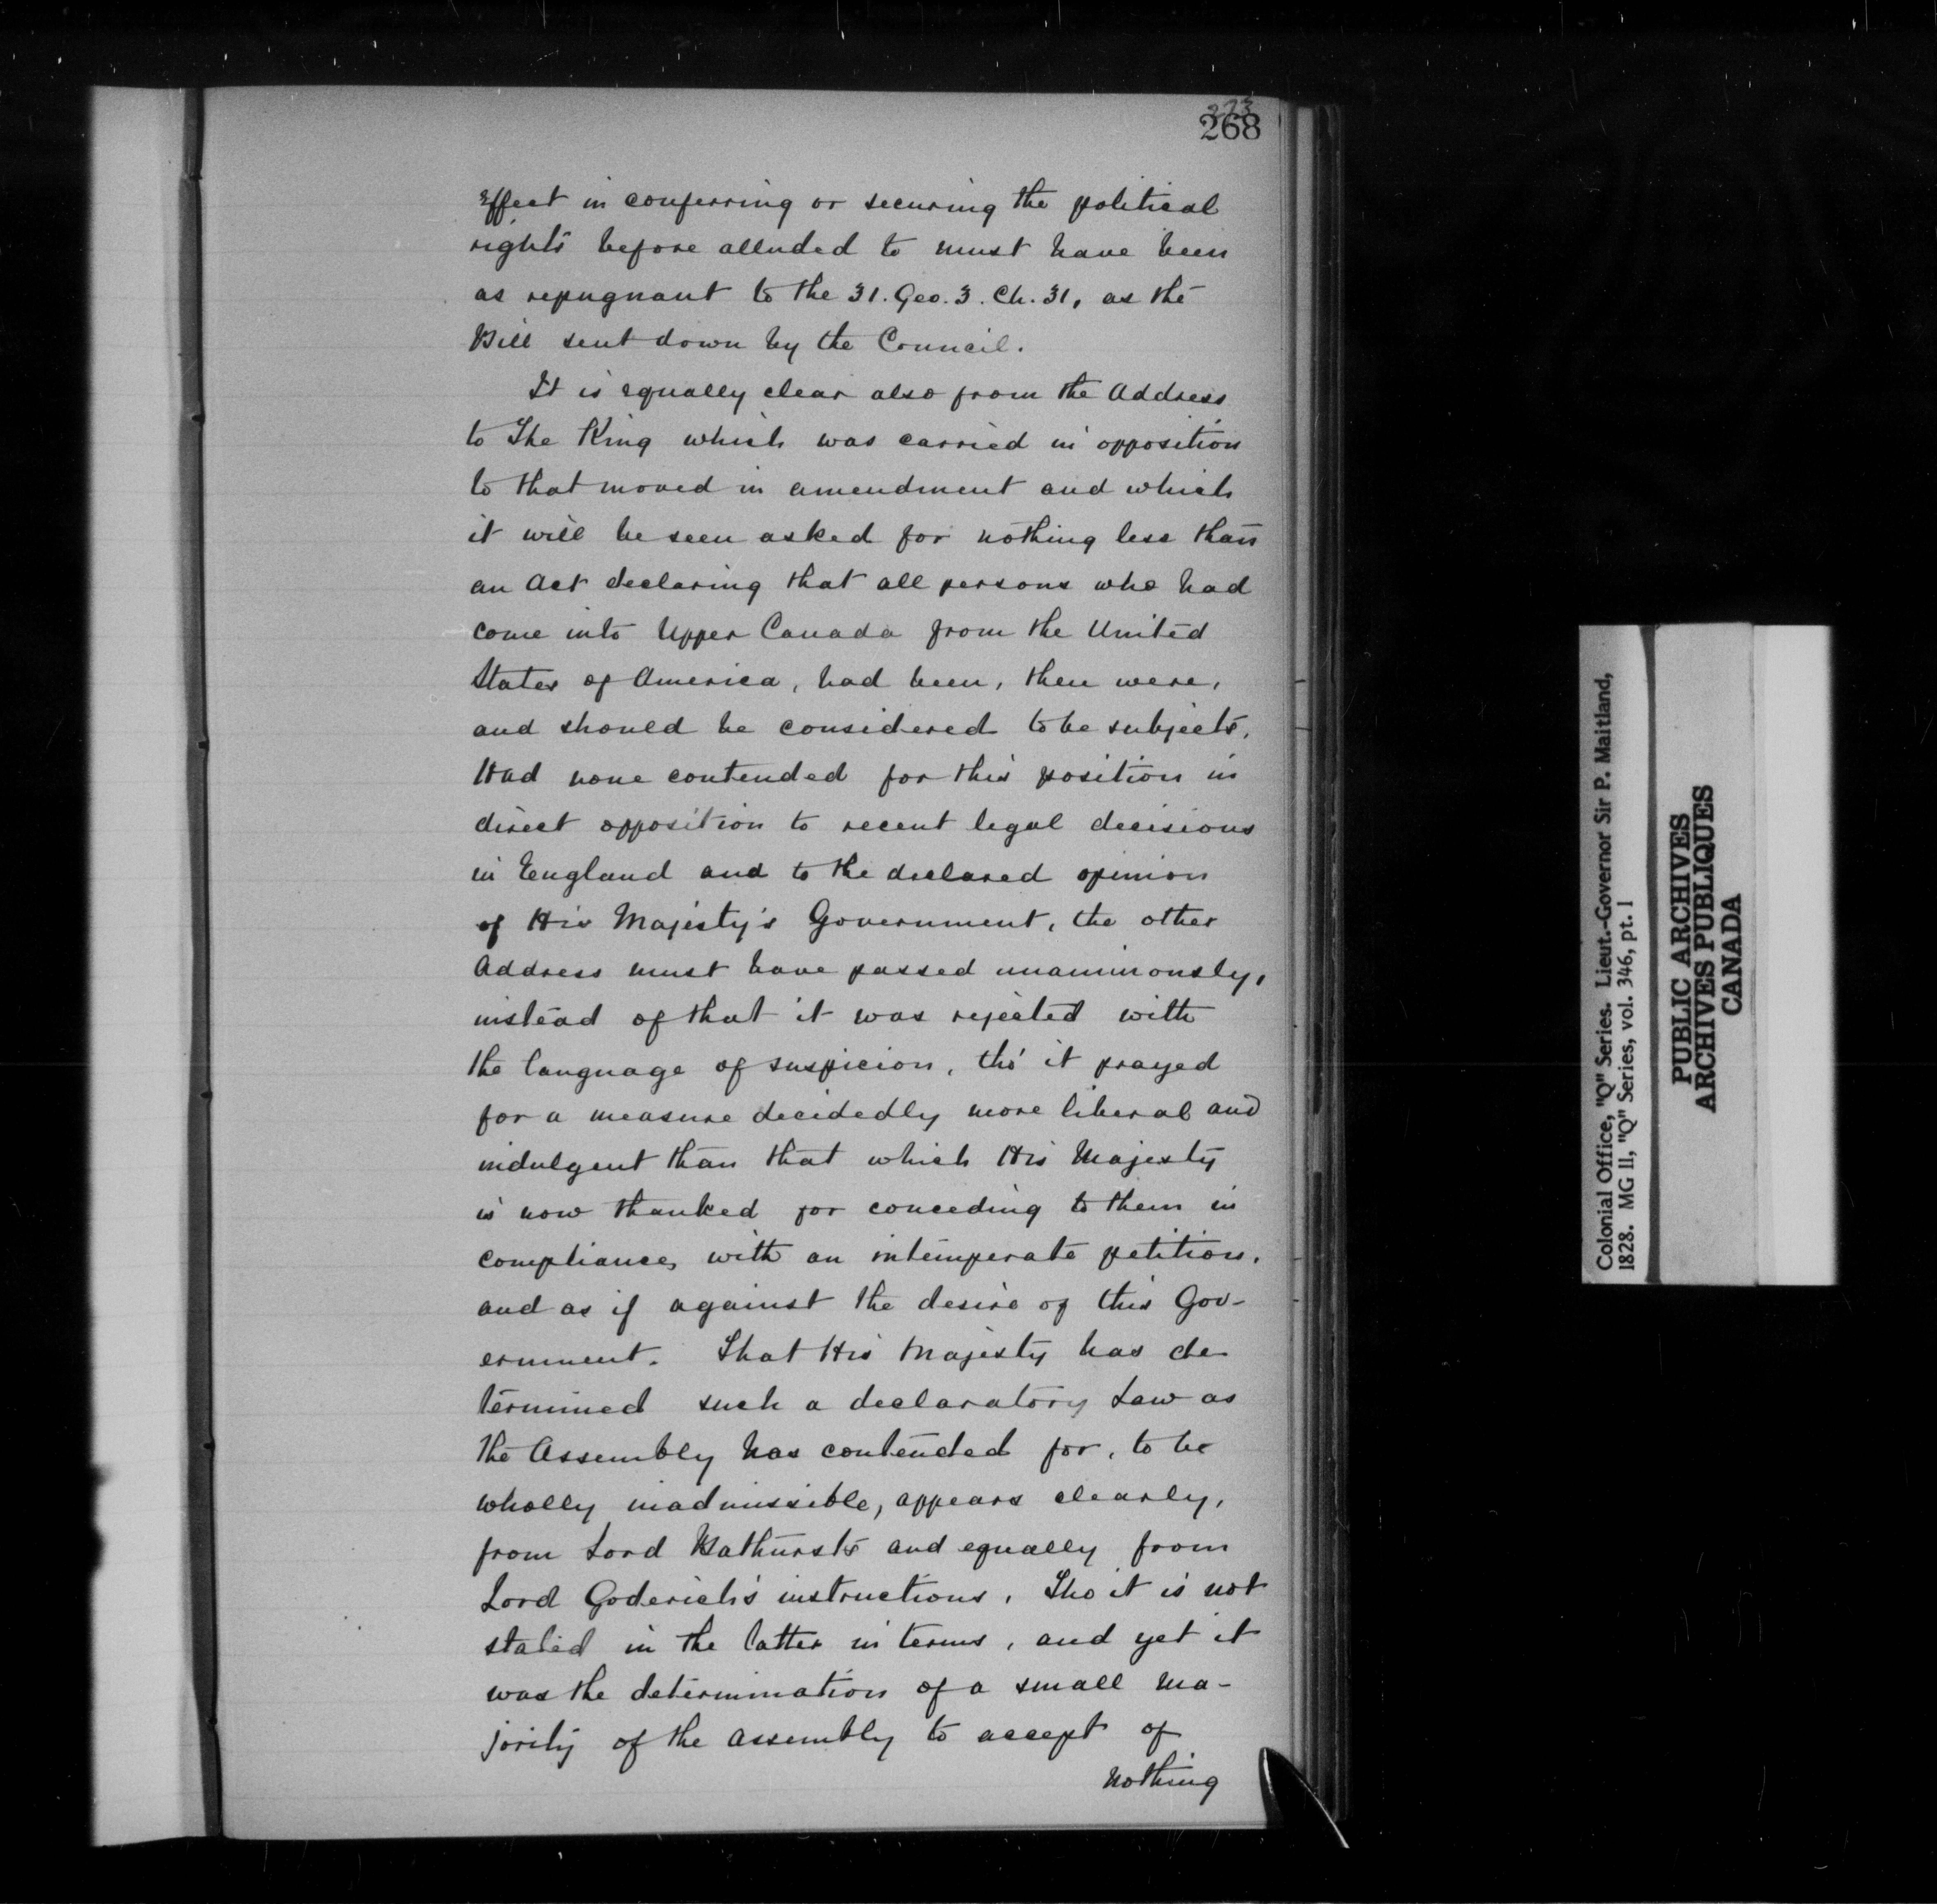 273
268
Effect in conferring or securing the political
rights before alluded to must have been
as repugnant to the 31. Geo. 3. Ch. 31, as the
Bill sent down by the Council.
It is equally clear also from the Address
to The King which was carried in opposition
to that moved in amendment and which
it will be seen asked for nothing less than
an Act declaring that all persons who had
come into Upper Canada from the United
States of America, had been, then were,
and should be considered to be subjects.
Had none contended for this position in
direct opposition to recent legal decisions
in England and to the declared opinion
of His Majesty's Government, the other
Address must have passed unanimously,
instead of that it was rejected with
the language of suspicion, tho' it prayed
for a measure decidedly more liberal and
indulgent than that which His Majesty
is now thanked for conceding to them in
compliance, with an intemperate petition,
and as if against the desire of this Gov-
ernment. That His Majesty has de-
termined such a declaratory Law as
the Assembly has contended for, to be
wholly inadmissible, appears clearly,
from Lord Bathursts and equally from
Lord Goderich's instructions, Tho it is not
stated in the latter in terms, and yet it
was the determination of a small ma-
jority of the Assembly to accept of
nothing
Colonial Office, "Q" Series. Lieut.-Governor Sir P. Maitland,
1828. MG 11, "Q" Series, vol. 346, pt. 1
PUBLIC ARCHIVES
ARCHIVES PUBLIQUES
CANADA